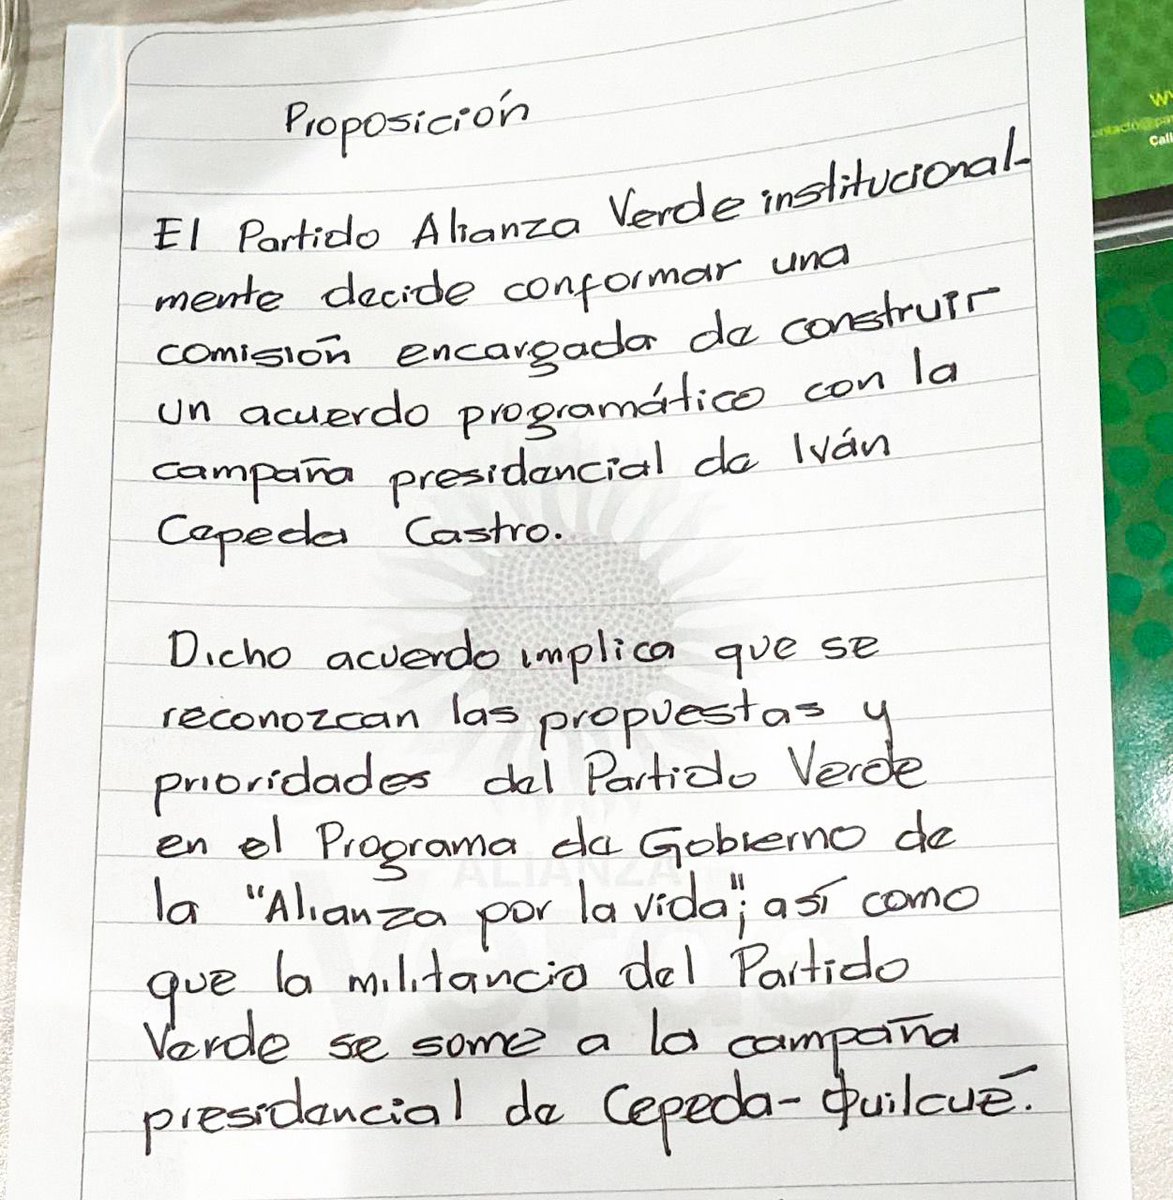 Proposición
El Partido Alianza Verde institucional-
mente decide conformar una
comisión encargada de construir
un acuerdo programático con la
campaña presidencial de Iván
Cepeda Castro.
Dicho acuerdo implica que se
reconozcan las propuestas y
prioridades del Partido Verde
en el Programa de Gobierno de
la "Alianza por la vida"; así como
que la militancia del Partido
Verde se some a la campaña
presidencial de Cepeda-Quilcué.
ALIANZA
Verde